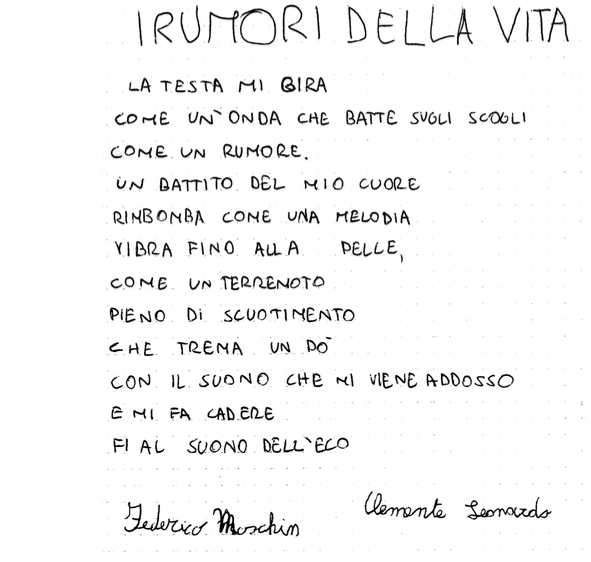 I RUMORI DELLA VITA
LA TESTA MI GIRA
COME UN`ONDA CHE BATTE SUGLI SCOGLI
COME UN RUMORE.
UN BATTITO DEL MIO CUORE
RIMBOMBA COME UNA MELODIA
VIBRA FINO ALLA PELLE,
COME UN TERREMOTO
PIENO Di SCUOTIMENTO
CHE TREMA UN DO`
CON IL SUONO CHE MI VIENE ADDOSSO
E MI FA CADERE
FI AL SUONO DELL`ECO
Federico Moschin
Clemente Leonardo